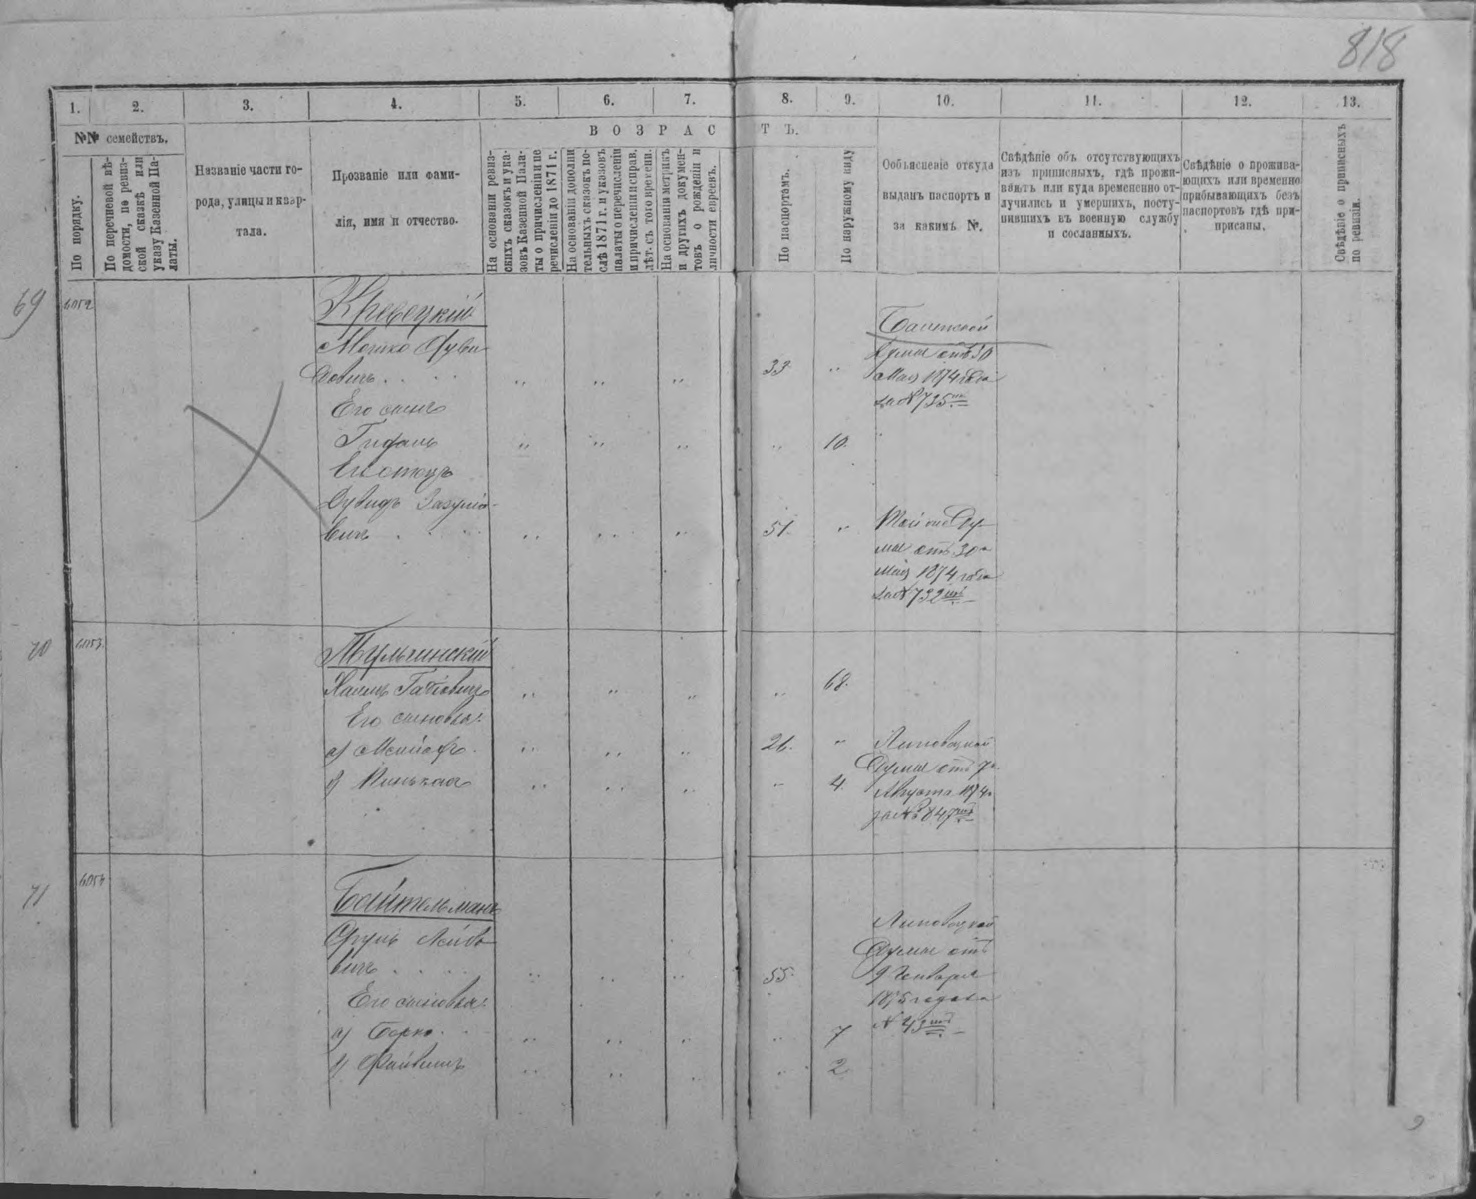 818
1. 2. 3. 4. 5. 6. 7. 8. 9. 10. 11. 12. 13.
№№ семействъ.
По порядку.
По перечневой вѣ-
домости, по ревиз-
ской сказкѣ или
указу Казенной Па-
латы.
Названіе части го-
рода, улицы и квар-
тала.
Прозваніе или фами-
лія, имя и отчество.
ВОЗРАСТЪ.
На основаніи ревиз-
скихъ сказокъ и ука-
зовъ Казенной Пала-
ты о причисленіи и пе
речисленіи до 1871 г.
На основаніи дополни
тельныхъ сказокъ по-
слѣ 1871 г. и указовъ
палаты о перечисленіи
и причисленіи и справ.
лѣт. съ того времени.
На основаніи метрикъ
и другихъ докумен-
товъ о рожденіи и
личности евреевъ.
По паспортамъ.
По наружному виду
Объясненіе откуда
выданъ паспортъ и
за какимъ №.
Свѣдѣніе объ отсутствующихъ
изъ приписныхъ, гдѣ прожи-
ваютъ или куда временно от-
лучились и умершихъ, посту-
пившихъ въ военную службу
и сосланныхъ.
Свѣдѣніе о прожива-
ющихъ или временно
прибывающихъ безъ
паспортовъ гдѣ при-
писаны.
Свѣдѣніе о приписныхъ
по ревизіи.
69
6052
Кревецкій
Мошко Дуви-
довичъ
33
Думы отъ 30
Мая 1874 года
за № 725
Его сынъ
10.
Его отецъ
Дувидъ
вичъ
51.
Той же Ду-
мы отъ 30
Мая 1874 года
за № 732
70
6053.
Тульчинскій
Хаимъ
68.
Его сыновья:
а)
26.
Липовецкой
Думы отъ 7
Августа 1874
за № 847
б) Пинькас
4.
71
6054
Байтельманъ
Лейбо-
вичъ
55.
Липовецкой
Думы отъ
9 Января
1875 года за
№ 43
Его сыновья:
а) Борко
7
б) Файвишъ
2